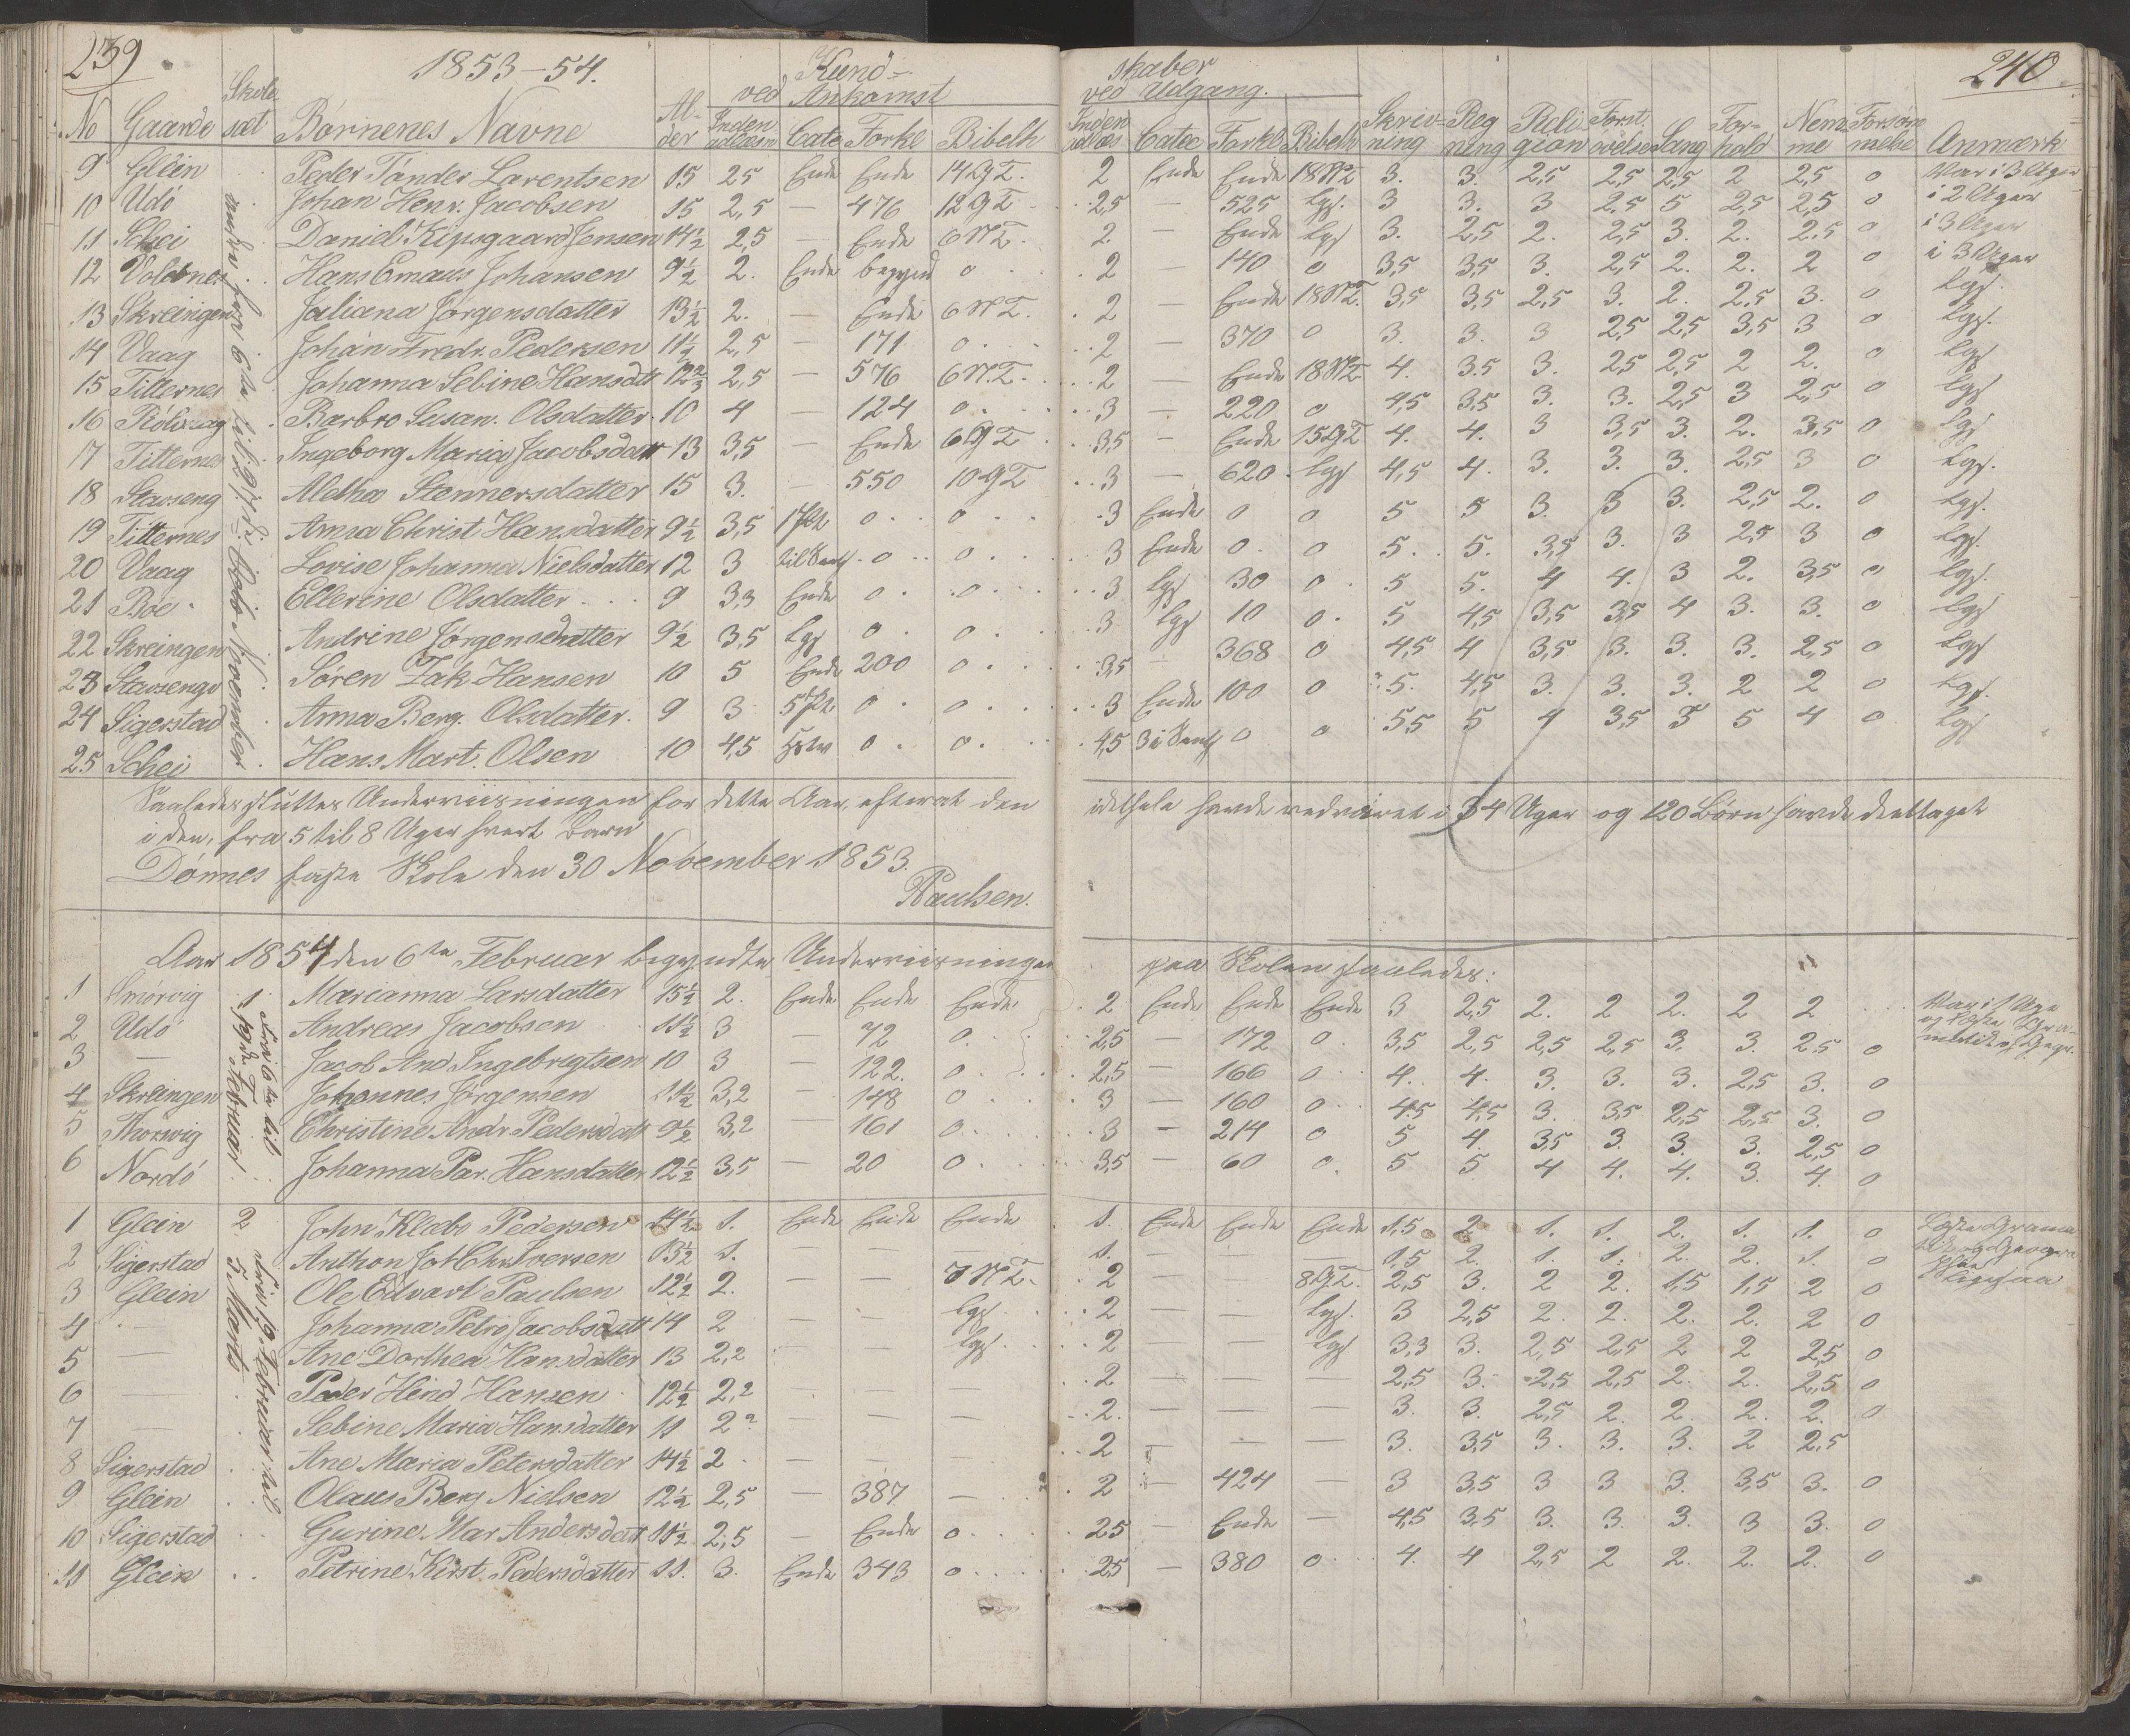 239
1853-54.
Kund-
skaber
240
ved Ankomst
ved Udgang.
No Gaarde Skole sæt Børnenes Navne Al- der Inden adlæsn Cate Forkl Bibelh Inden adlæs Catec Forkl Bibelh Skriv- ning Reg ning Reli gion Forst. øvelse Sang For- hold Nem me Forsøm melse Anmærk
9 Glein Peder Tønder Larentsen 15 2,5 Ende Ende 14 G T. 2 Ende Ende 18 N T 3. 3. 2,5 2,5 2,5 2 2,5 0 Var i 3 Uger
10 Udø Johan Henr. Jacobsen 15 2,5 — 476 12 G T 2,5 — 525 lgs. 3 3. 3 2,5 5 2,5 2,5 0 i 2 Uger
11 Schei Daniel Kipsgaard Jensen 14½ 2,5 — Ende 6 N T. 2 — Ende lgs 3. 2,5 2. 2,5 3. 2. 2,5 0 i 3 Uger
12 Volbnes Hans Emaus Johansen 9½ 2. Ende begynd 0 2 — 140 0 3,5 3,5 3. 2,5 2. 2. 2 0 i 3 Uger
13 Skreingen Juliana Jørgensdatter 13½ 2. — Ende 6 N T. 2 — Ende 18 N T. 3,5 3,5 2,5 3. 2. 2,5 3. 0 lgs.
14 Vaag Johan Fredr. Pedersen 11½ 2,5 — 171 0 2 — 370 0 3. 3. 3 2,5 2,5 3,5 3 0 lgs.
15 Titternes Johanna Sebine Hansdtt 12⅔ 2,5 — 576 6 N. T. 2 — Ende 18 N T 4. 3.5 3. 2,5 2,5 2 2. 0 lgs
16 Rölivaag Barbro Susan. Olsdatter 10 4 — 124 0 3 — 220 0 4,5 3,5 3. 3. 2,5 3 2,5 0 lgs
17 Titternes Ingeborg Maria Jacobsdatr 13 3,5 — Ende 6 G T 3,5 — Ende 15 G T 4. 4. 3 3,5 3. 2. 3,5 0 lgs
18 Stavseng Aletha Stennersdatter 15 3. — 550 10 G T 3 — 620 lgs 4,5 4. 3. 3. 3. 2,5 3 0 lgs.
19 Titternes Anna Christ Hansdatter 9½ 3,5 1 0 0 3 Ende 0 0 5 5 3. 3 3. 2,5 2. 0 lgs.
20 Vaag Lovise Johanna Nielsdatter 12 3 0 0 3 Ende 0 0 5. 5. 3,5 3. 3 2,5 3 0 lgs.
21 Bøe Ellerine Olsdatter 9 3,3 Ende 0 0 3 lgs 30 0 5 5. 4 4. 3 2. 3,5 0 lgs.
22 Skreingen Andrine Jørgensdatter 9½ 3,5 lgs 0 0 3 lgs 10 0 5 4,5 3,5 3,5 4 3. 3. 0 lgs
23 Stavsengv Søren Zak Hansen 10 5 Ende 200 0 3,5 — 368 0 4,5 4 3,5 3. 3. 3. 2,5 0 lgs
24 Sigerstad Anna Berg. Olsdatter. 9 3 5 0 0 3 Ende 100 0 5. 4,5 3. 3. 3. 2 2 0 lgs.
25 Schei Hans Mart. Olsen 10 4,5 0 0 4,5 0 0 5,5 5 4 3,5 3 5 4 0 lgs
Saaledes sluttes Underviisningen for dette Aar, efterat den idethele havde vedvaret i 34 Uger og 120 Børn havde deeltaget
i den, fra 5 til 8 Uger hvert Barn
Dønnes faste Skole den 30 November 1853.
Paulsen.
Aar 1854 den 6te Februar begyndte Underviisningen paa Skolen saaledes:
1 Smørvig Marianna Larsdatter 15½ 2. Ende Ende Ende 2 Ende Ende Ende 3 2,5 2. 2 2. 2 2 Var i 1 Uge
2 Udø Andreas Jacobsen 11½ 3 — 72 0. 2,5 — 172 0 3,5 2,5 2,5 2,5 3. 3. 2,5 0
3 — Jacob And Ingebrigtsen 10 3 — 122. 0 2,5 — 166 0 4. 4. 3. 3. 3. 2,5 3. 0
4 Skreingen Johannes Jørgensen 11½ 3,2 — 148 0 3 — 160 0 4.5 4,5 3. 3,5 2,5 2,5 3. 0
5 Skorwig Christine Andr Pedersdatt 9½ 3,2 — 161 0 3 — 214 0 5 4. 3,5 3. 3. 3. 2,5 0
6 Nordø Johanna Par. Hansdatter 12½ 3,5 — 20 0 3,5 — 60 0. 5 5 4 4. 4. 3. 4. 0
1 Fra 6te til 19de Februar
1 Glein 2 John Klæbo Pedersen 14½ 1. Ende Ende Ende 1. Ende Ende Ende 1,5 2 1. 1. 2. 1. 1. 0 Læste Grama
2 Sigerstad Anthon Joh Chr Iversen 13½ 1. — — 1. — — 1,5 2. 1. 1. 2. 2. 1. 0
3 Glein Ole Edvart Paulsen 12½ 2. — — 7 N T. 2 — 8 G T. 2,5 3. 2 2. 1,5 1,5 2 0 ligesaa
4 — Johanna Petro Jacobsdatt 14 2 — — lgs. 2 — — lgs. 3 2,5 2. 2. 2. 2. 2 0
5 — Ane Dorthea Hansdatter 13 2,2 — — lgs. 2 lgs 3,3 3. 2,5 2,5 2 2 2,5 0
6 — Peder Hind Hansen 12½ 2,2 — — — 2 — — — 2,5 3. 2,5 2,5 2. 2. 2,5 0
7 — Sebine Maria Hansdatter 11 2? — — — 2. — — — 3. 3. 2,5 2. 2. 2. 2. 0
8 Sigerstad Ane Maria Petersdatter 14½ 2 — 2 — — — 3. 3,5 3. 3. 3. 2 2,5
9 Glein Olaus Berg Nielsen 12½ 2,5 — 387 — 2 — 424 — 3 3,5 3 3 3. 3,5 3. 0
10 Sigerstad Gurine Mar Andersdatt 11½ 2,5 — Ende 0 2,5 — Ende — 4,5 3,5 3. 3. 3. 3 3. 0
11 Glein Petrine Kirst. Pedersdatter 11. 3. Ende 343 0 2,5 — 380 0 4. 4 2,5 2 2. 2. 2. 0
Fra 19 Februar til 5 Marts